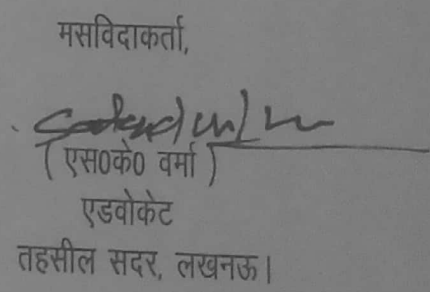 मसविदाकर्ता,
( एस0के0 वर्मा )
एडवोकेट
तहसील सदर, लखनऊ।